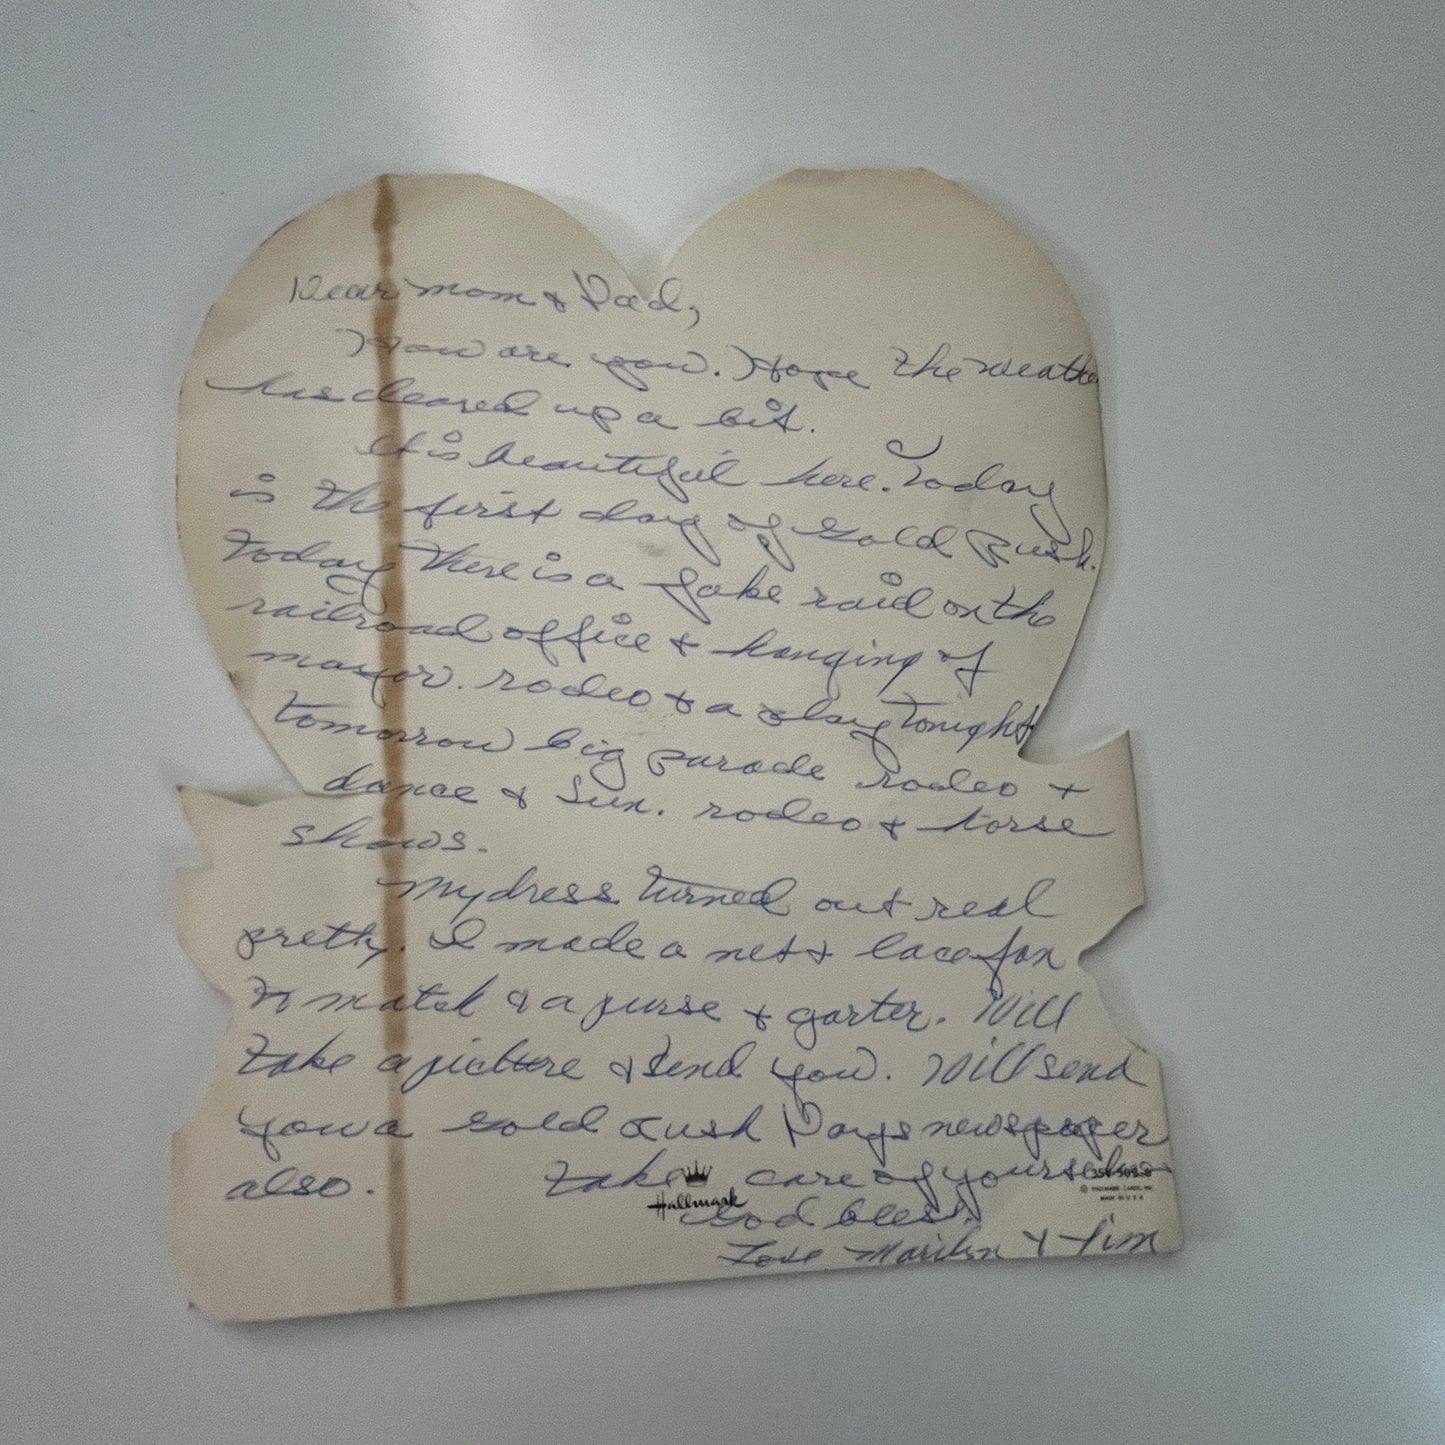 Dear mom & Dad,
How are you. Hope the weather
has cleared up a bit.
It is beautiful here. Today
is the first day of Gold Rush.
Today there is a fake raid on the
railroad office & hanging of
mayor. rodeo & a play tonight
tomorrow big parade rodeo +
dance & Sun. rodeo & horse
shows.
My dress turned out real
pretty. I made a net & lace fan
to match & a purse & garter. Will
take a picture & send you. Will send
you a Gold Rush Days newspaper
also. take care of yourselves
Hallmark
God bless.
Love Marilyn & Jim
© HALLMARK CARDS, INC.
MADE IN U.S.A.